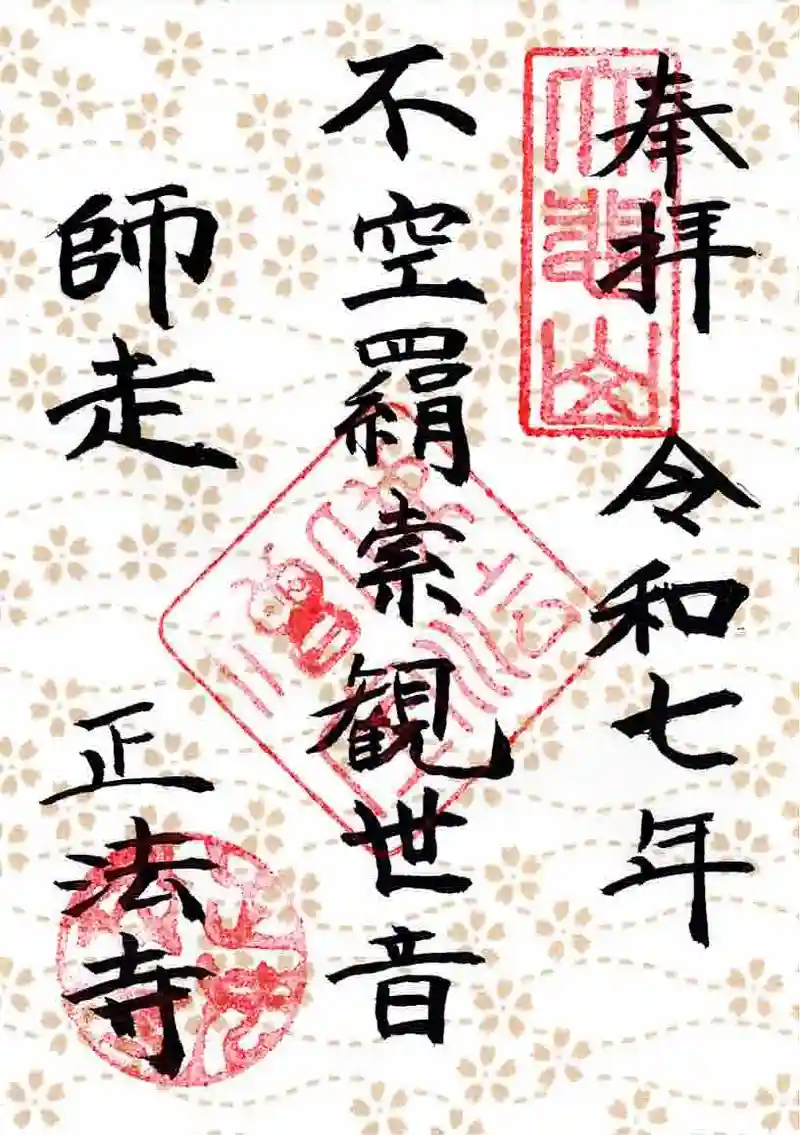 奉拝 令和七年
大悲山
不空羂索観世音
師走
正法寺